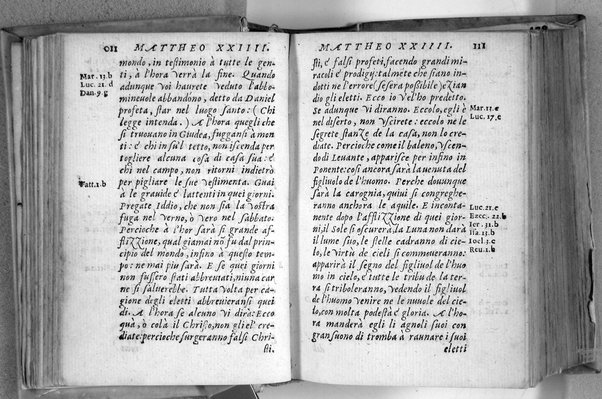 110
MATTHEO XXIIII.
mondo, in testimonio à tutte le gen-
ti, à l'hora verrà la fine. Quando
Mar. 13.b
adunque voi haurete veduto l'abbo-
Luc. 21.d
mineuole abbandono, detto da Daniel
Dan. 9.g
profeta, star nel luogo santo: (Chi
legge intenda.) A l'hora quegli che
si truouano in Giudea, fuggansi à mon
ti: e chi in su'l tetto, non iscenda per
togliere alcuna cosa di casa sua: e
chi nel campo, non ritorni indietro
per pigliare le sue vestimenta. Guai
à le grauide e lattenti in quei giorni.
Pregate Iddio, che non sia la vostra
fuga nel verno, ò vero nel sabbato:
Percioche à l'hor sarà si grande af-
flizzione, qual giamai nō fu dal prin-
cipio del mondo, infino à questo tem-
po: ne mai piu sarà. E se quei giorni
non fussero stati abbreuiati, niuna car
ne si saluerebbe. Tutta volta per ca-
gione degli eletti abbreuieransi quei
di. A l'hora se alcuno vi dirà: Ecco
quà, ò colà il Christo, non gli el' cre-
diate: percioche surgeranno falsi Chri-
sti,
MATTHEO XXIIII.
111
sti, e falsi profeti, facendo grandi mi-
racoli e prodigy: talmete che siano in-
dotti ne l'errore (se sera possibile) ezian
dio gli eletti. Ecco io vel'ho predetto.
Se adunque vi diranno. Eccolo, egli è
Mar. 13.c
nel diserto, non vscirete: eccolo ne le
Luc. 17.e
segrete stanze de la casa, non lo cre-
diate. Percioche come il baleno, vscen-
do di Leuante, apparisce per infino in
Ponente: cosi ancora sarà la venuta del
figliuol de l'huomo. Perche douunque
sarà la carognia, quiui si congreghe-
ranno anchora le aquile. E inconta-
Luc. 21.e
nente dopo l'afflizzione di quei gior-
Ezec. 22.b
ni, il Sole si oscurerà, la Luna non darà
Ier. 31.b
il lume suo, le stelle cadranno di cie-
Isa. 13.b
lo, le virtù de cieli si commoueranno:
Ioel. 3.c
apparirà il segno del figliuol de l'huo
Reu. 1.b
mo in cielo, e tutte le tribu de la ter-
ra si triboleranno, vedendo il figliuol
de l'huomo venire ne le nuuole del cie-
lo, con molta podestà e gloria. A l'ho-
ra manderà egli li agnoli suoi con
gran suono di tromba à raunare i suoi
eletti